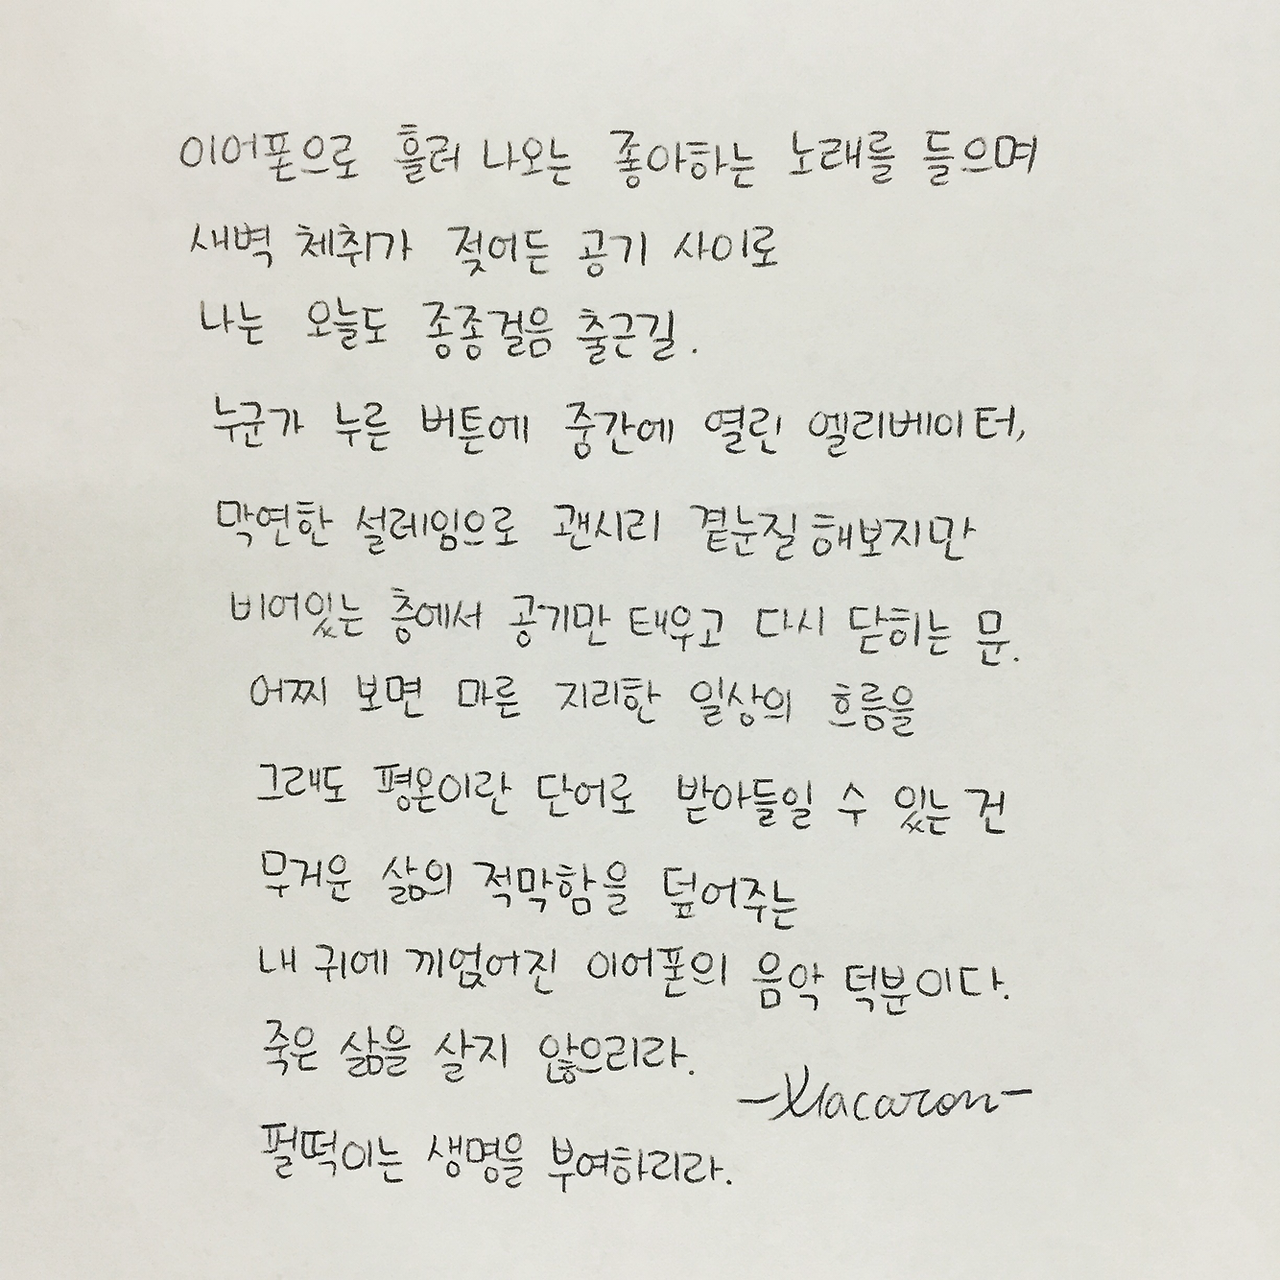 이어폰으로 흘러 나오는 좋아하는 노래를 들으며
새벽 체취가 젖어든 공기 사이로
나는 오늘도 종종걸음 출근길.
누군가 누른 버튼에 중간에 열린 엘리베이터,
막연한 설레임으로 괜시리 곁눈질 해보지만
비어있는 층에서 공기만 태우고 다시 닫히는 문.
어찌 보면 마른 지리한 일상의 흐름을
그래도 평온이란 단어로 받아들일 수 있는 건
무거운 삶의 적막함을 덮어주는
내 귀에 끼얹어진 이어폰의 음악 덕분이다.
죽은 삶을 살지 않으리라.
-Macaron-
펄떡이는 생명을 부여하리라.